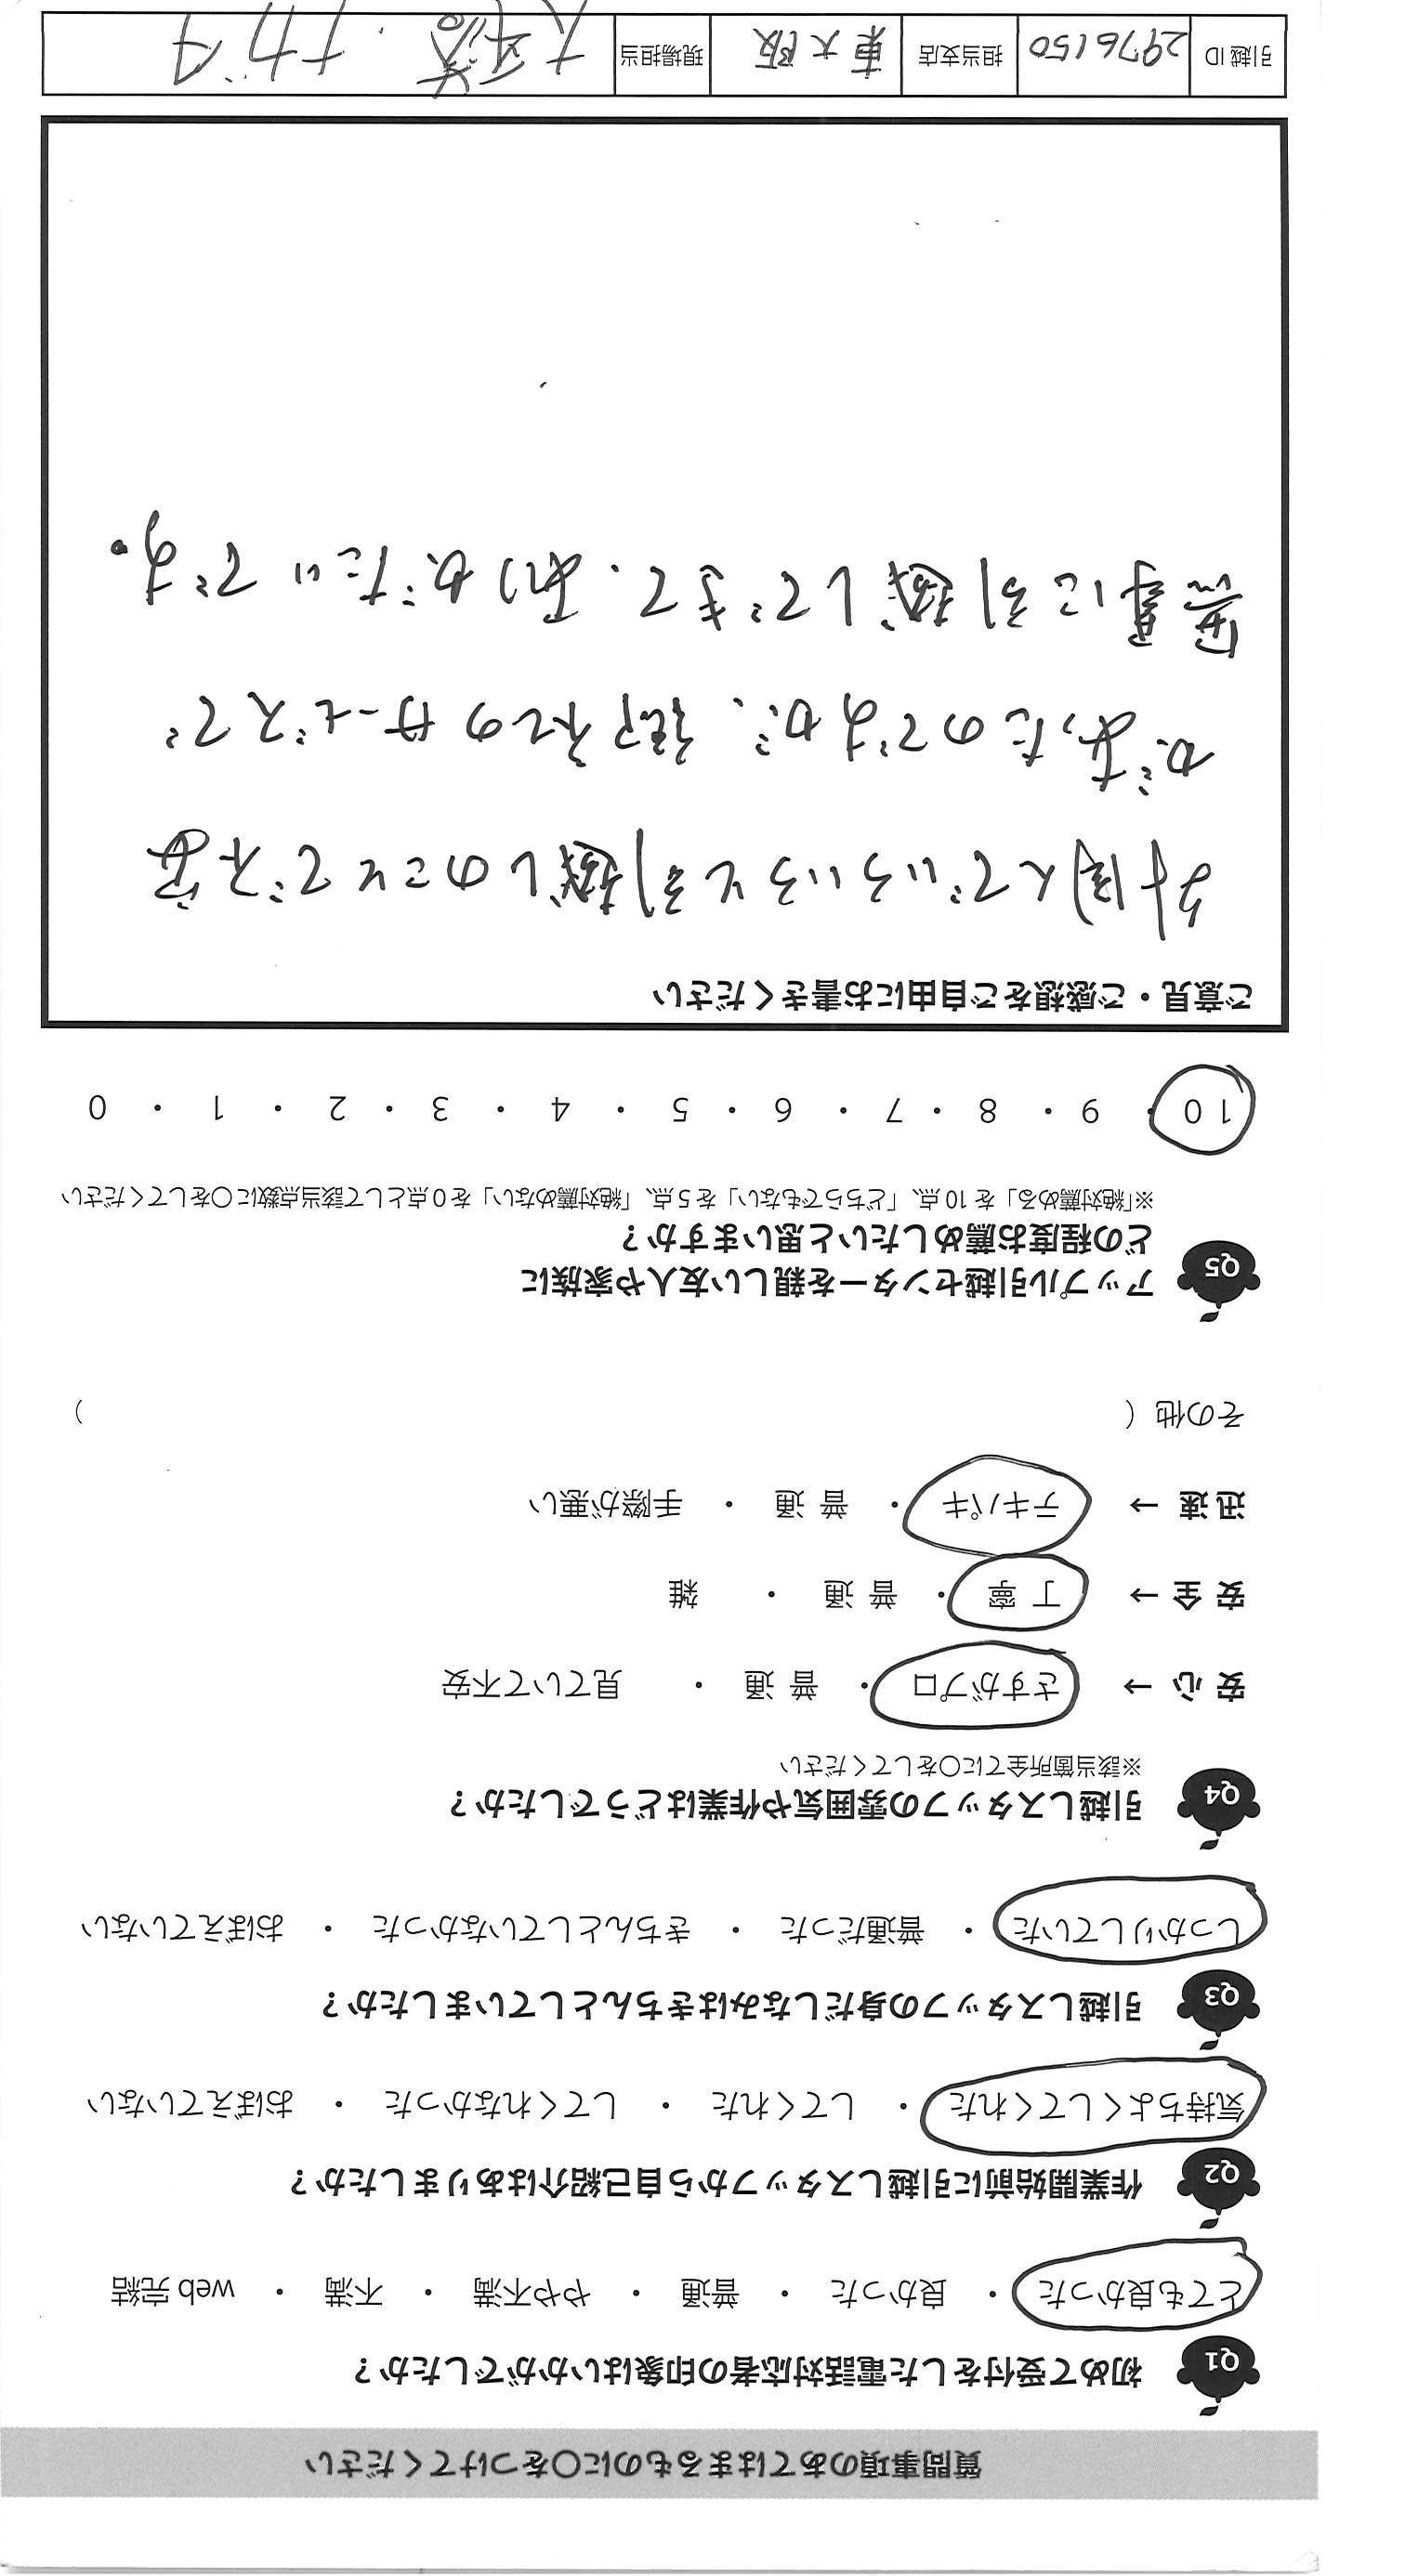 質問事項のあてはまるものに○をつけてください
Q1 初めて受付をした電話対応者の印象はいかがでしたか？
とても良かった ・ 良かった ・ 普通 ・ やや不満 ・ 不満 ・ web 完結
Q2 作業開始前に引越しスタッフから自己紹介はありましたか？
気持ちよくしてくれた ・ してくれた ・ してくれなかった ・ おぼえていない
Q3 引越しスタッフの身だしなみはきちんとしていましたか？
しっかりしていた ・ 普通だった ・ きちんとしていなかった ・ おぼえていない
Q4 引越しスタッフの雰囲気や作業はどうでしたか？
※該当箇所全てに○をしてください
安 心 → さすがプロ ・ 普 通 ・ 見ていて不安
安 全 → 丁 寧 ・ 普 通 ・ 雑
迅 速 → テキパキ ・ 普 通 ・ 手際が悪い
その他（ ）
Q5 アップル引越センターを親しい友人や家族に
どの程度お薦めしたいと思いますか？
※「絶対薦める」を 10 点、「どちらでもない」を 5 点、「絶対薦めない」を 0 点として該当点数に○をしてください
10 ・ 9 ・ 8 ・ 7 ・ 6 ・ 5 ・ 4 ・ 3 ・ 2 ・ 1 ・ 0
ご意見・ご感想をご自由にお書きください
外国人でいろいろと引越しのことで不安
があったのですが、 のサービスで
無事に引越しできて、ありがたいです。
引越 ID 2976150 担当支店 東大阪 現場担当 ナガタ